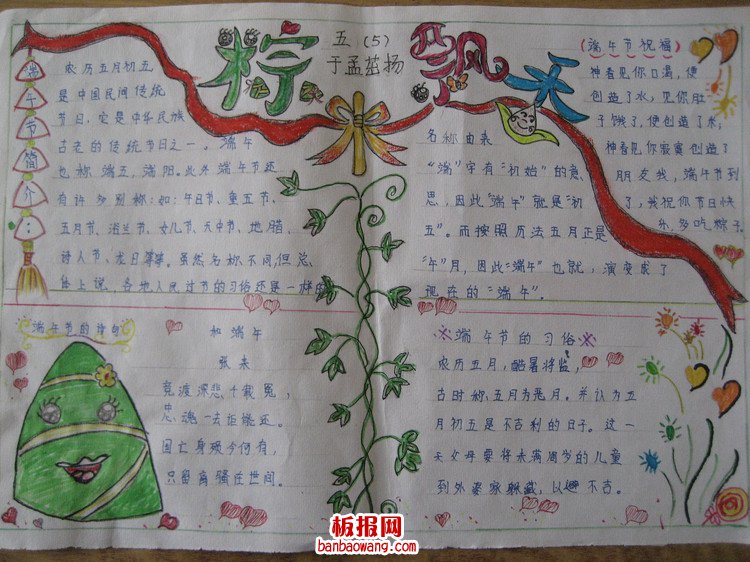 粽
飘
香
五(5)
于孟茁扬
端午节简介:
农历五月初五
是中国民间传统
节日,它是中华民族
古老的传统节日之一。端午
也称端五,端阳。此外端午节还
有许多别称:如:午日节、重五节、
五月节、浴兰节、女儿节、天中节、地腊、
诗人节、龙日等等。虽然名称不同,但总
体上说,各地人民过节的习俗还是一样的
名称由来
“端”字有“初始”的意
思,因此“端午”就是“初
五”。而按照历法五月正是
“午”月,因此“端午”也就,演变成了
现在的“端午”。
(端午节祝福)
神看见你口渴,便
创造了水;见你肚
子饿了,便创造了米;
神看见你寂寞创造了
朋友我,端午节到
了,我祝你节日快
乐,多吃粽子
端午节的诗句
和端午
张耒
竞渡深悲千载冤,
忠魂一去讵能还。
国亡身殒今何有,
只留离骚在世间。
端午节的习俗
农历五月,酷暑将临,
古时称五月为恶月。并认为五
月初五是不吉利的日子。这一
天父母要将未满周岁的儿童
到外婆家躲藏,以避不吉。
板报网
banbaowang.com